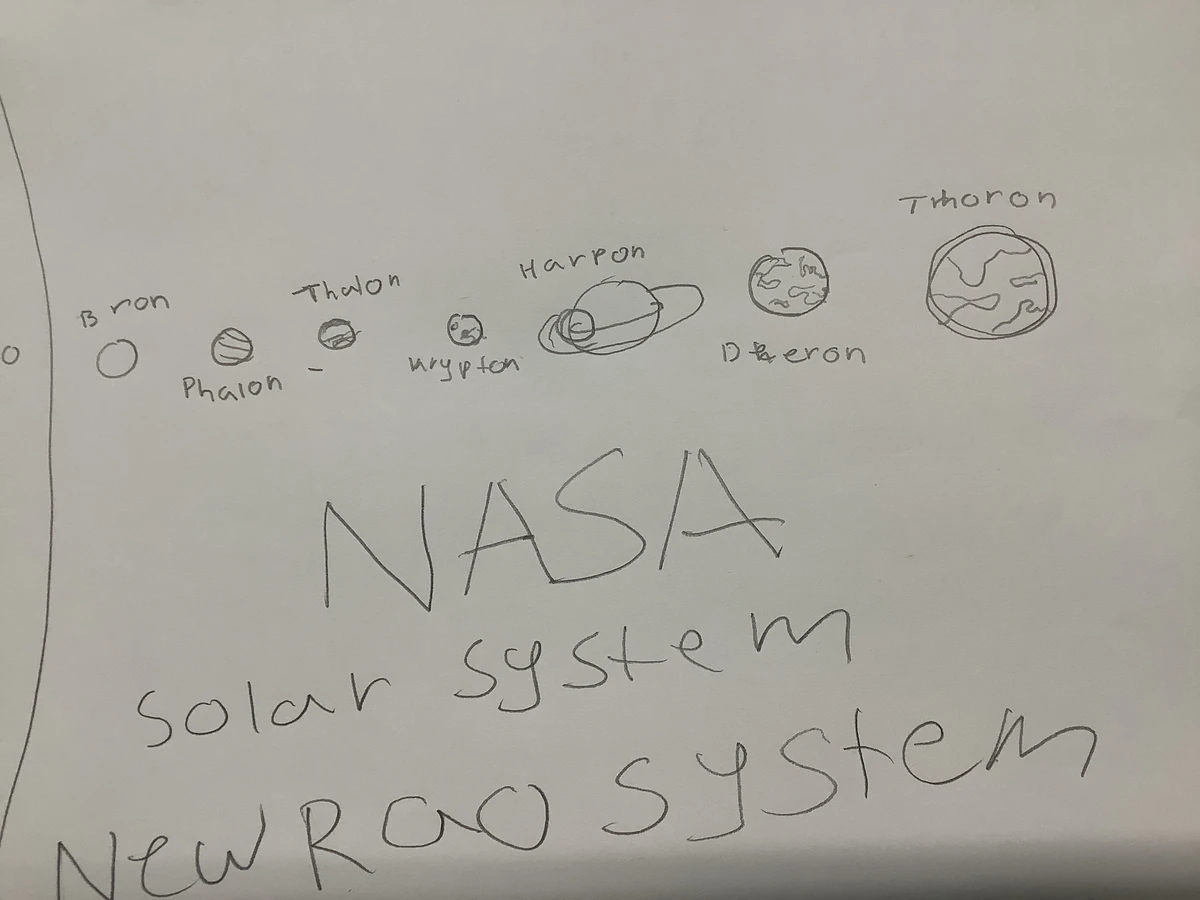 Bron
Phalon
Thalon
Krypton
Harpon
Tmoron
NASA
solar system
New Rao system